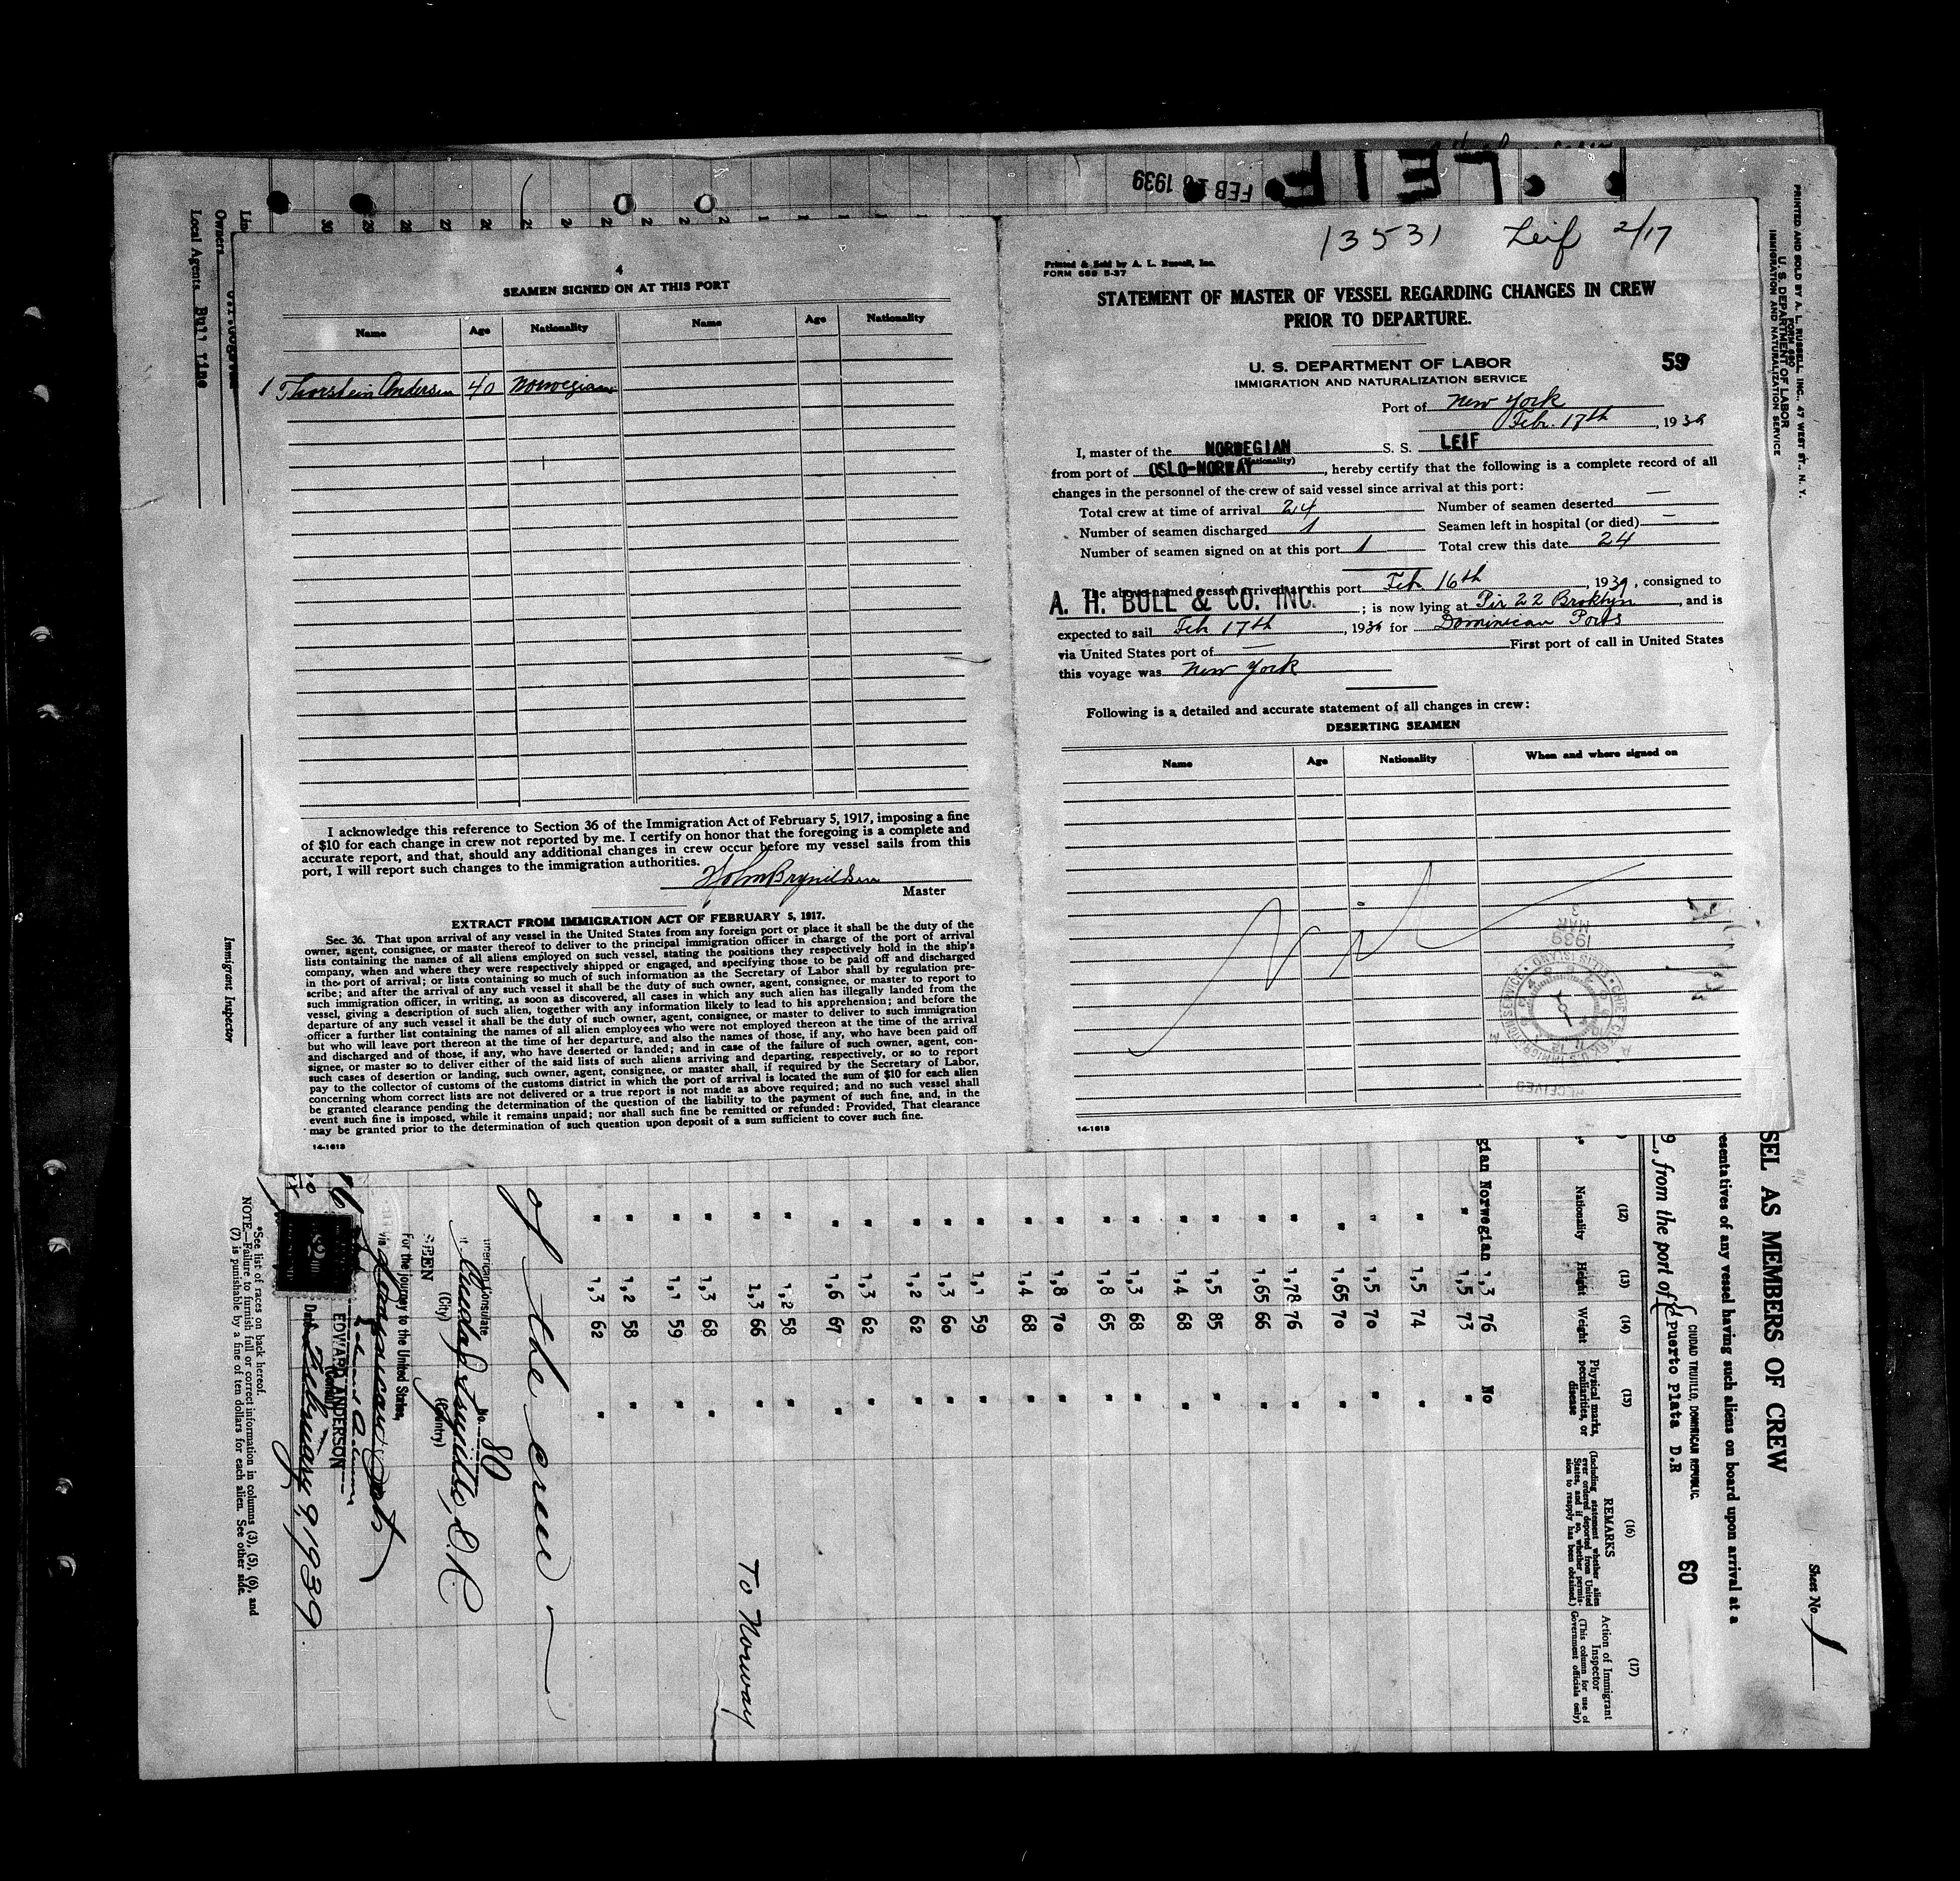 LEIF
FEB 16 1939
13531 Leif 2/17
4
SEAMEN SIGNED ON AT THIS PORT
Name Age Nationality Name Age Nationality
1 Thorstein Andersen 40 Norwegian
I acknowledge this reference to Section 36 of the Immigration Act of February 5, 1917, imposing a fine
of $10 for each change in crew not reported by me. I certify on honor that the foregoing is a complete and
accurate report, and that, should any additional changes in crew occur before my vessel sails from this
port, I will report such changes to the immigration authorities.
Master
EXTRACT FROM IMMIGRATION ACT OF FEBRUARY 5, 1917.
Sec. 36. That upon arrival of any vessel in the United States from any foreign port or place it shall be the duty of the
owner, agent, consignee, or master thereof to deliver to the principal immigration officer in charge of the port of arrival
lists containing the names of all aliens employed on such vessel, stating the positions they respectively hold in the ship's
company, when and where they were respectively shipped or engaged, and specifying those to be paid off and discharged
in the port of arrival; or lists containing so much of such information as the Secretary of Labor shall by regulation pre-
scribe; and after the arrival of any such vessel it shall be the duty of such owner, agent, consignee, or master to report to
such immigration officer, in writing, as soon as discovered, all cases in which any such alien has illegally landed from the
vessel, giving a description of such alien, together with any information likely to lead to his apprehension; and before the
departure of any such vessel it shall be the duty of such owner, agent, consignee, or master to deliver to such immigration
officer a further list containing the names of all alien employees who were not employed thereon at the time of the arrival
but who will leave port thereon at the time of her departure, and also the names of those, if any, who have been paid off
and discharged and of those, if any, who have deserted or landed; and in case of the failure of such owner, agent, con-
signee, or master so to deliver either of the said lists of such aliens arriving and departing, respectively, or so to report
such cases of desertion or landing, such owner, agent, consignee, or master shall, if required by the Secretary of Labor,
pay to the collector of customs of the customs district in which the port of arrival is located the sum of $10 for each alien
concerning whom correct lists are not delivered or a true report is not made as above required; and no such vessel shall
be granted clearance pending the determination of the question of the liability to the payment of such fine, and, in the
event such fine is imposed, while it remains unpaid; nor shall such fine be remitted or refunded: Provided, That clearance
may be granted prior to the determination of such question upon deposit of a sum sufficient to cover such fine.
14-1613
Printed & Sold by A. L. Russell, Inc.
FORM 689 5-37
STATEMENT OF MASTER OF VESSEL REGARDING CHANGES IN CREW
PRIOR TO DEPARTURE.
U. S. DEPARTMENT OF LABOR 59
IMMIGRATION AND NATURALIZATION SERVICE
Port of New York
Febr. 17th, 1939
I, master of the NORWEGIAN S. S. LEIF
(Nationality)
from port of OSLO-NORWAY, hereby certify that the following is a complete record of all
changes in the personnel of the crew of said vessel since arrival at this port:
Total crew at time of arrival 24 Number of seamen deserted —
Number of seamen discharged 1 Seamen left in hospital (or died) —
Number of seamen signed on at this port 1 Total crew this date 24
The above-named vessel arrived at this port Feb 16th, 1939, consigned to
A. H. BULL & CO. INC. ; is now lying at Pir 22 Broklyn, and is
expected to sail Feb 17th, 1939 for Dominican Ports
via United States port of — First port of call in United States
this voyage was New York
Following is a detailed and accurate statement of all changes in crew:
DESERTING SEAMEN
Name Age Nationality When and where signed on
Nil
MAR 3
1939
14-1613
PRINTED AND SOLD BY A. L. RUSSELL, INC., 47 WEST ST., N. Y.
FORM 680
U. S. DEPARTMENT OF LABOR
IMMIGRATION AND NATURALIZATION SERVICE
Sheet No. 1
SEL AS MEMBERS OF CREW
resentatives of any vessel having such aliens on board upon arrival at a
60
9, from the port of
CIUDAD TRUJILLO, DOMINICAN REPUBLIC.
Puerto Plata D.R
(12) (13) (14) (15) (16) (17)
Nationality Height Weight Physical marks, peculiarities, or disease
REMARKS
(Including statement whether alien ever ordered deported from United States, and if so, whether permission to reapply has been obtained.)
Action of Immigrant Inspector
(This column for use of Government officials only)
gian Norwegian 1,3 76 No
" 1,5 73 "
" 1,5 74 "
" 1,5 70 "
" 1,65 70
" 1,78 76 "
" 1,65 66 "
" 1,5 85 "
" 1,4 68 "
" 1,3 68 "
" 1,8 65 "
" 1,8 70 "
" 1,4 68 "
" 1,1 59 "
" 1,3 60 "
" 1,2 62 "
" 1,3 62 "
" 1,6 67 "
" 1,2 58 "
" 1,3 66 " To Norway
" 1,3 68 "
" 1,1 59 "
" 1,2 58 "
" 1,3 62 "
of the crew
American Consulate No. 80
at Ciudad Trujillo, D.R.
(City) (Country)
SEEN
For the journey to the United States,
via
EDWARD ANDERSON
(Consul)
Date February 9, 1939
*See list of races on back hereof.
NOTE.—Failure to furnish full or correct information in columns (3), (5), (6), and
(7) is punishable by a fine of ten dollars for each alien. See other side.
Immigrant Inspector
Owners
Local Agents Bull Line